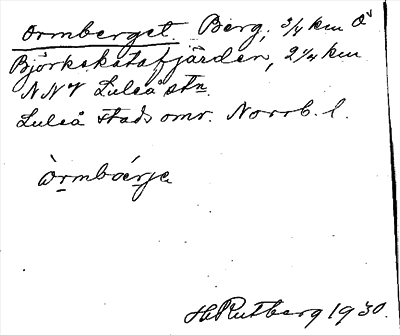 Ormberget. Berg, 3/4 km Ö
Björkskatafjärden, 2 1/4 km
NNV Luleå stn
Luleå stads omr. Norrb. l.
òrmbǽrje
H Rutberg 1930.